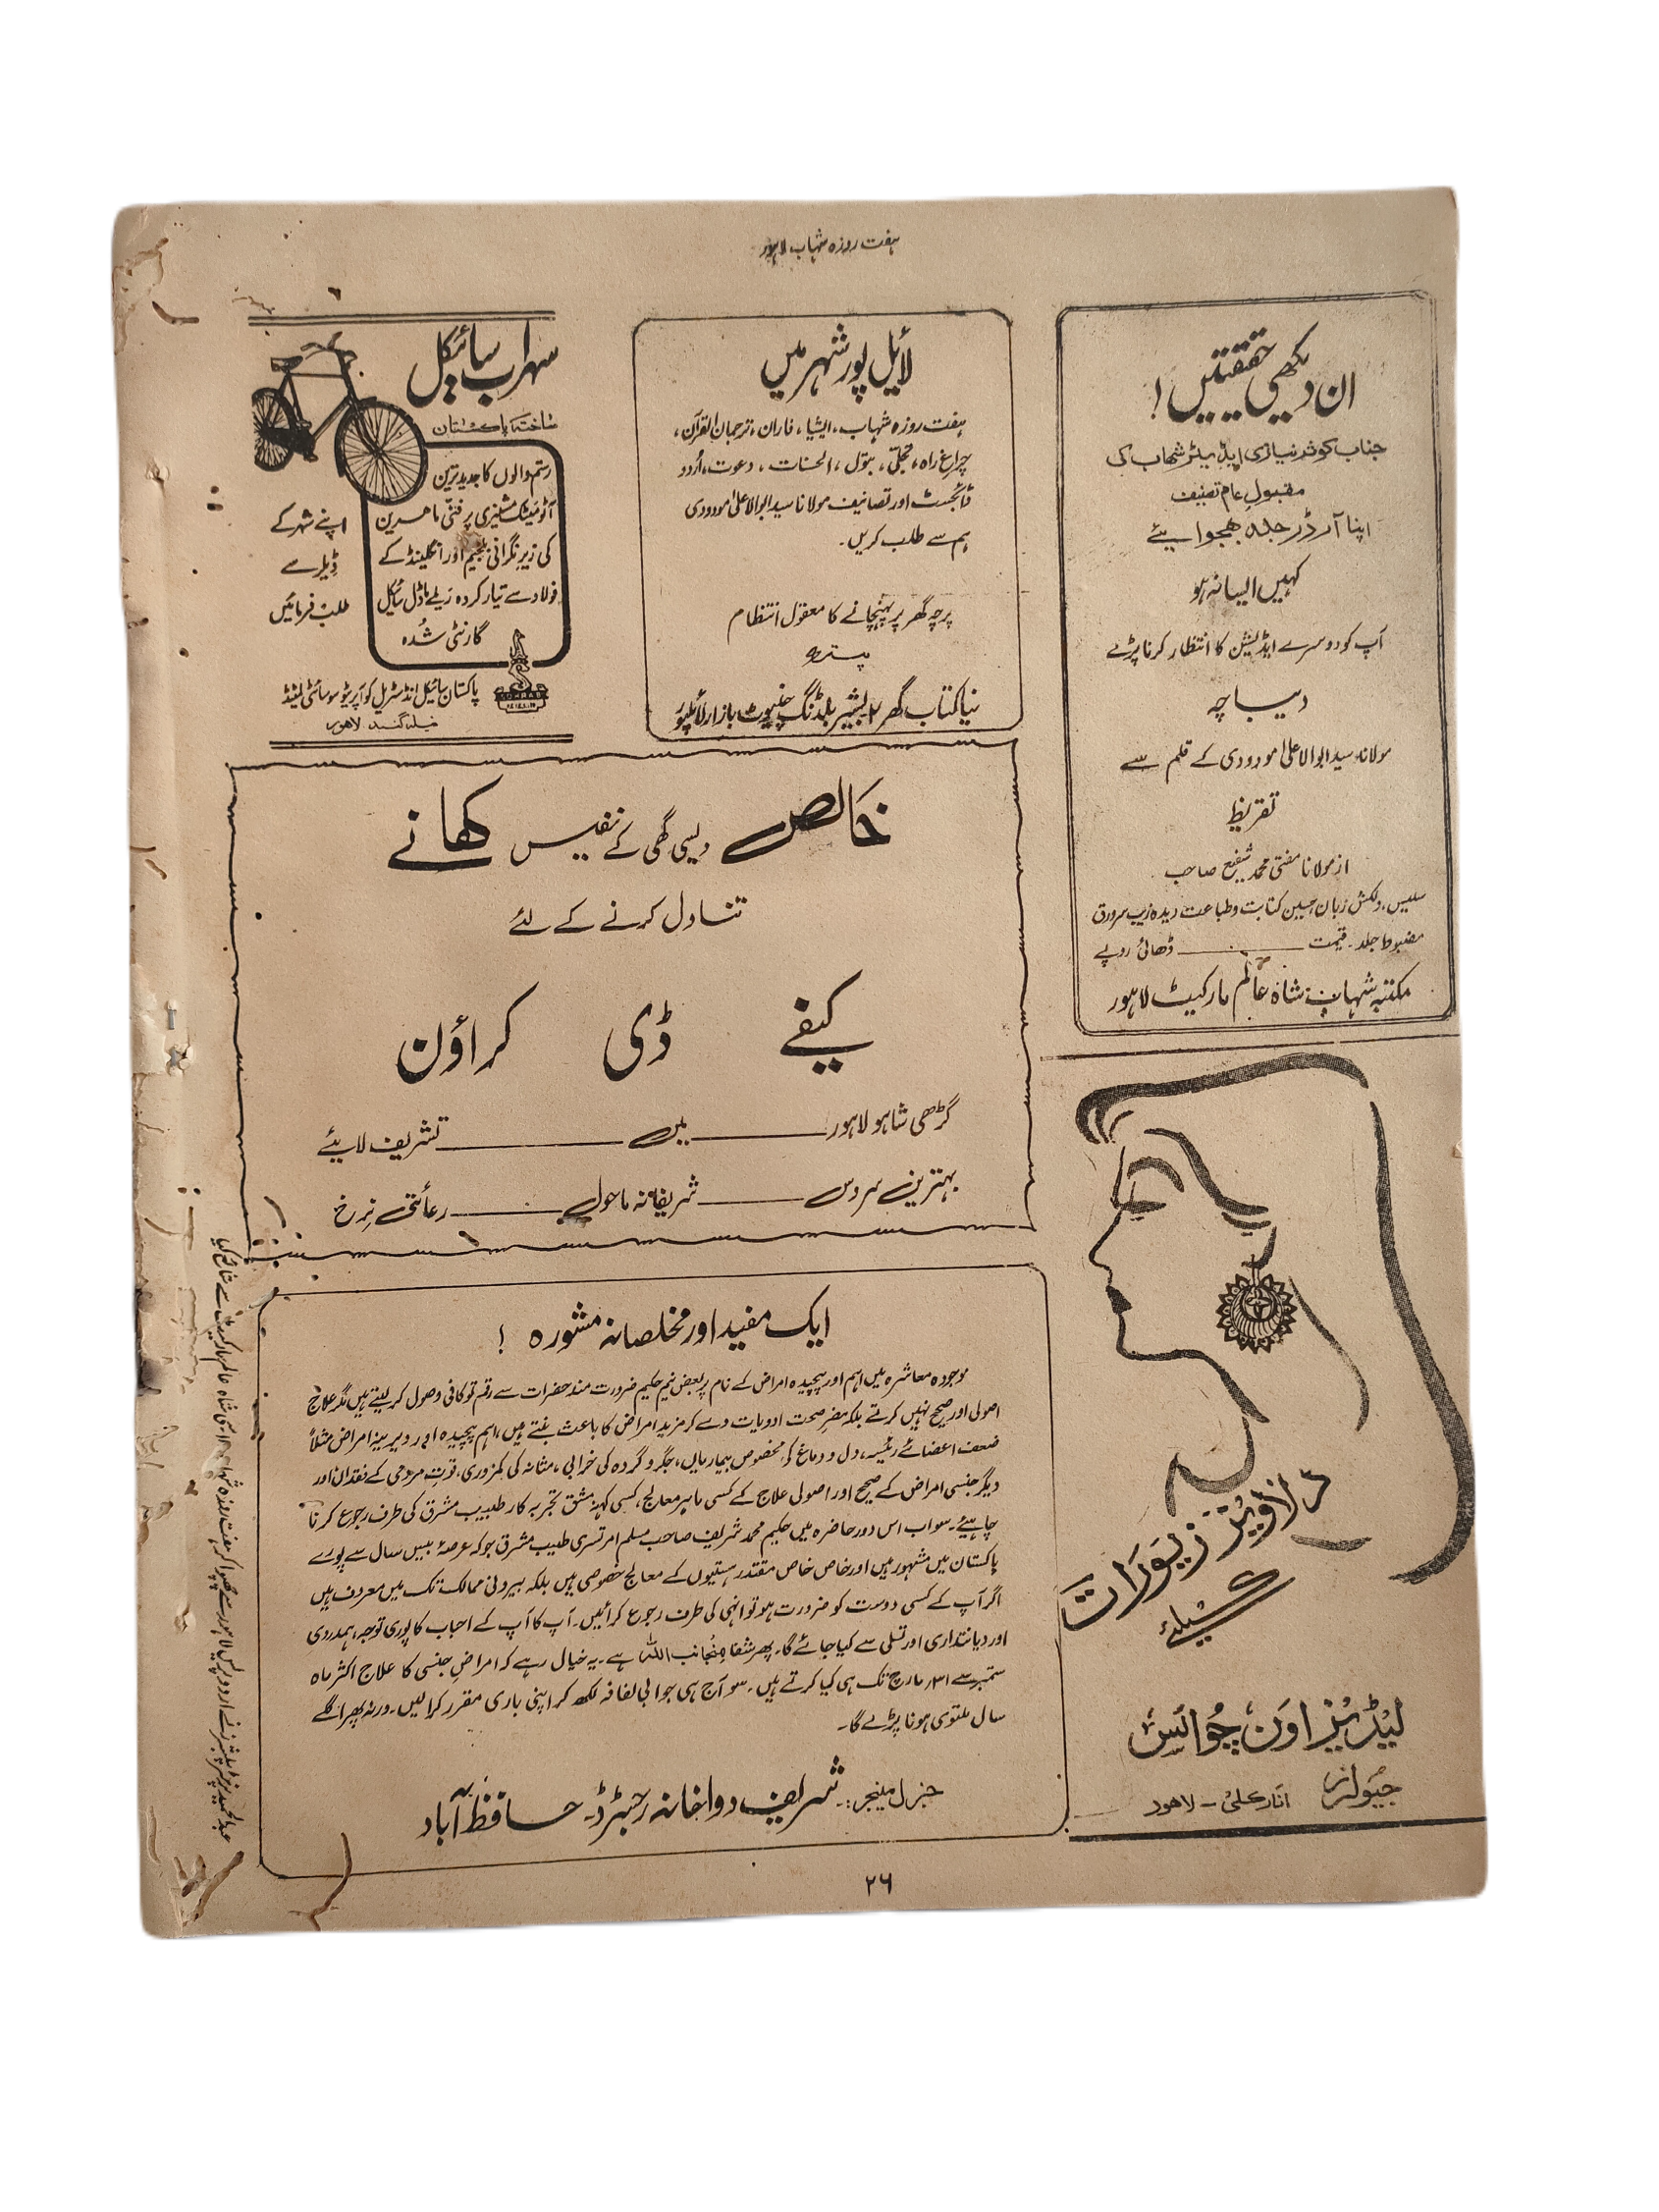 ہفت روزہ شہاب لاہور
ان دیکھی حقیقتیں!
جناب کوثر نیازی ایڈیٹر شہاب کی
مقبولِ عام تصنیف
اپنا آرڈر جلد بھجوائیے
کہیں ایسا نہ ہو
آپ کو دوسرے ایڈیشن کا انتظار کرنا پڑے
دیباچہ
مولانا سید ابوالاعلیٰ مودودی کے قلم سے
تقریظ
از مولانا مفتی محمد شفیع صاحب
سلیس، دلکش زبان، حسین کتابت و طباعت دیدہ زیب سرورق
مضبوط جلد۔ قیمت ——— ڈھائی روپے
مکتبہ شہاب شاہ عالم مارکیٹ لاہور
لائل پور شہر میں
ہفت روزہ شہاب، ایشیا، فاران، ترجمان القرآن،
چراغ راہ، تجلّی، بتول، الحسنات، دعوت، اُردو
ڈائجسٹ اور تصانیف مولانا سید ابوالاعلیٰ مودودی
ہم سے طلب کریں۔
پرچہ گھر پر پہنچانے کا معقول انتظام
پتہ
نیا کتاب گھر ۲ بشیر بلڈنگ چنیوٹ بازار لائلپور
سہراب سائیکل
ساختہ پاکستان
رستم والوں کا جدید ترین
آٹومیٹک مشینری پر فنّی ماہرین
کی زیرِ نگرانی بلجیم اور انگلینڈ کے
فولاد سے تیار کردہ ریلے ماڈل سائیکل
گارنٹی شُدہ
اپنے شہر کے
ڈیلر سے
طلب فرمائیں
SOHRAB
پاکستان سائیکل انڈسٹریل کوآپریٹو سوسائٹی لمیٹڈ
نیلا گنبد لاہور
خالص دیسی گھی کے نفیس کھانے
تناول کرنے کے لئے
کیفے ڈی کراؤن
گڑھی شاہو لاہور ——— میں ——— تشریف لائیے
بہترین سروس ——— شریفانہ ماحول ——— رعائتی نرخ
دلآویز زیورات
کیلئے
لیڈیز اون چوائس
جیولرز انارکلی - لاہور
ایک مفید اور مخلصانہ مشورہ !
موجودہ معاشرہ میں اہم اور پیچیدہ امراض کے نام پر بعض نیم حکیم ضرورت مند حضرات سے رقم تو کافی وصول کر لیتے ہیں مگر علاج
اصولی اور صحیح نہیں کرتے بلکہ مضرِ صحت ادویات دے کر مزید امراض کا باعث بنتے ہیں، اہم پیچیدہ اور دیرینہ امراض مثلاً
ضعف اعضائے رئیسہ، دل و دماغ کی مخصوص بیماریاں، جگر و گردہ کی خرابی، مثانہ کی کمزوری، قوتِ مردمی کے فقدان اور
دیگر جنسی امراض کے صحیح اور اصولی علاج کے کسی ماہر معالج، کسی کہنہ مشق تجربہ کار طبیب مشرق کی طرف رجوع کرنا
چاہیئے۔ سو اب اس دور حاضرہ میں حکیم محمد شریف صاحب مسلم امرتسری طبیب مشرق جو کہ عرصہ بیس سال سے پورے
پاکستان میں مشہور ہیں اور خاص خاص مقتدر ہستیوں کے معالج خصوصی ہیں بلکہ بیرونی ممالک تک میں معروف ہیں
اگر آپ کے کسی دوست کو ضرورت ہو تو انہی کی طرف رجوع کرائیں۔ آپ کا آپ کے احباب کا پوری توجہ، ہمدردی
اور دیانتداری اور تسلی سے کیا جائے گا۔ پھر شفا منجانب اللہ ہے۔ یہ خیال رہے کہ امراضِ جنسی کا علاج اکثر ماہ
ستمبر سے ۳۱؍ مارچ تک ہی کیا کرتے ہیں۔ سو آج ہی جوابی لفافہ لکھ کر اپنی باری مقرر کرا لیں۔ ورنہ پھر اگلے
سال ملتوی ہونا پڑے گا۔
جنرل مینیجر:۔ شریف دواخانہ رجسٹرڈ۔ حافظ آباد
عبدالحمید پرنٹر پبلشر نے اردو پریس لاہور سے چھپوا کر ہفت روزہ شہاب سی شاہ عالم مارکیٹ سے شائع کیا
۲۶